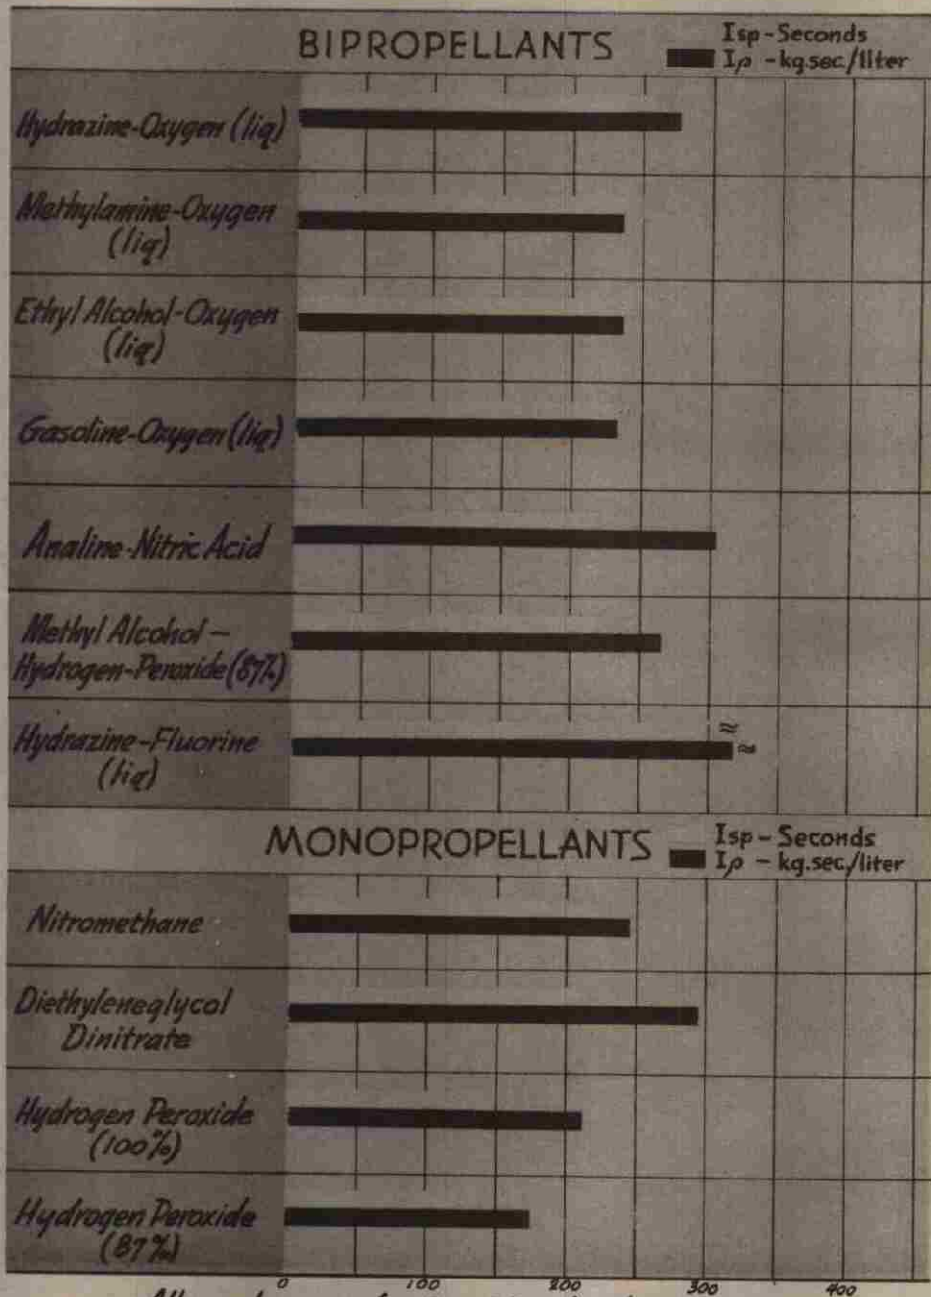 BIPROPELLANTS
Isp-Seconds
Iρ - kg.sec/liter
Hydrazine-Oxygen (liq)
Methylamine-Oxygen
(liq)
Ethyl Alcohol-Oxygen
(liq)
Gasoline-Oxygen (liq)
Analine-Nitric Acid
Methyl Alcohol-
Hydrogen-Peroxide (87%)
Hydrazine-Fluorine
(liq)
≈
≈
MONOPROPELLANTS
Isp - Seconds
Iρ - kg.sec/liter
Nitromethane
Diethyleneglycol
Dinitrate
Hydrogen Peroxide
(100%)
Hydrogen Peroxide
(87%)
0 100 200 300 400